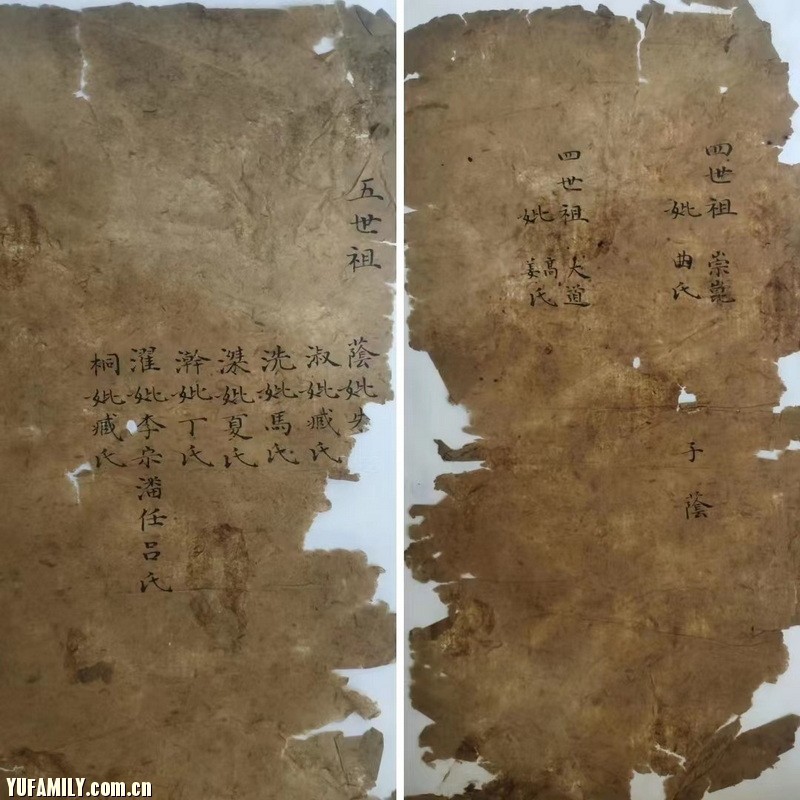 四世祖 崇
妣 曲氏
子 蔭
四世祖 大道
妣 高姜氏
五世祖
蔭妣失
淑妣臧氏
洗妣馬氏
滐妣夏氏
澣妣丁氏
濯妣李宗潘任呂氏
桐妣臧氏
YUFAMILY.com.cn